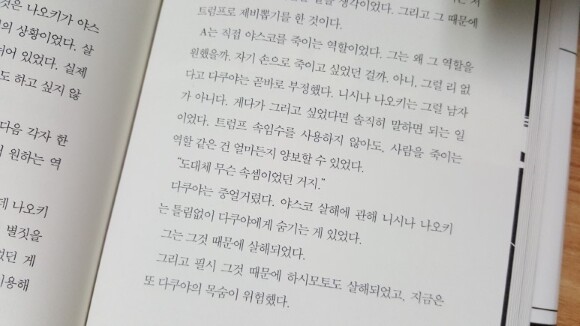 것은 나오키가 야스
의 상황이었다. 살
어 있었다. 실제
도 하고 싶지 않
다음 각자 한
원하는 역
데 나오키
별짓을
었던 게
용해
생각이었다. 그리고 그 때문에
트럼프로 제비뽑기를 한 것이다.
A는 직접 야스코를 죽이는 역할이었다. 그는 왜 그 역할을
원했을까. 자기 손으로 죽이고 싶었던 걸까. 아니, 그럴 리 없
다고 다쿠야는 곧바로 부정했다. 니시나 나오키는 그럴 남자
가 아니다. 게다가 그러고 싶었다면 솔직히 말하면 되는 일
이었다. 트럼프 속임수를 사용하지 않아도, 사람을 죽이는
역할 같은 건 얼마든지 양보할 수 있었다.
"도대체 무슨 속셈이었던 거지."
다쿠야는 중얼거렸다. 야스코 살해에 관해 니시나 나오키
는 틀림없이 다쿠야에게 숨기는 게 있었다.
그는 그것 때문에 살해되었다.
그리고 필시 그것 때문에 하시모토도 살해되었고, 지금은
또 다쿠야의 목숨이 위험했다.